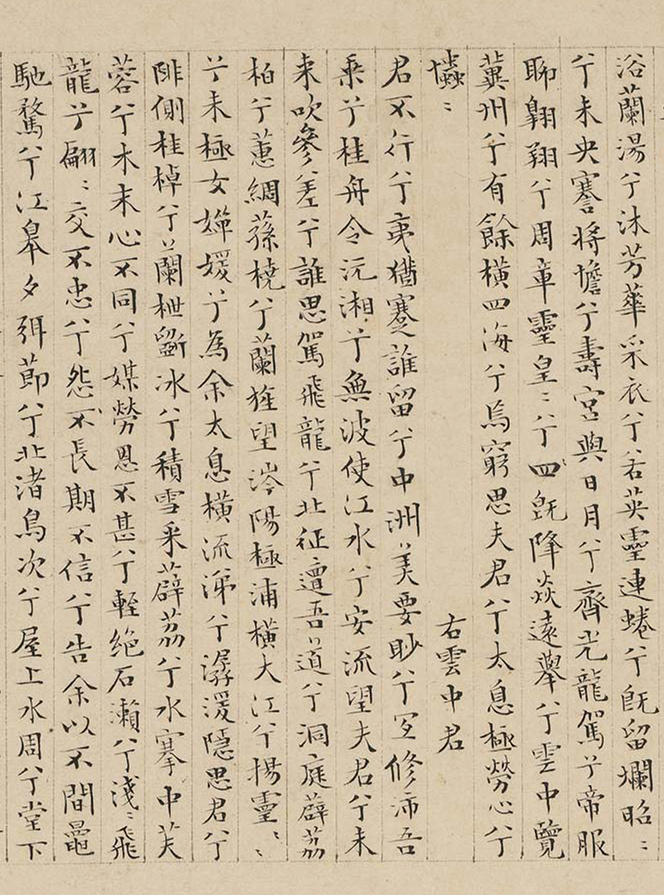 浴蘭湯兮沐芳華采衣兮若英靈連蜷兮旣留爛昭〻
兮未央謇将憺兮壽宮與日月兮齊光龍駕兮帝服
聊翱翔兮周章靈皇〻兮四旣降焱遠舉兮雲中覽
冀州兮有餘橫四海兮焉窮思夫君兮太息極勞心兮
爞〻
右雲中君
君不行兮夷猶蹇誰留兮中洲美要眇兮宜修沛吾
乘兮桂舟令沅湘兮無波使江水兮安流望夫君兮未
来吹參差兮誰思駕飛龍兮北征邅吾道兮洞庭薜荔
柏兮蕙綢蓀橈兮蘭旌望涔陽極浦橫大江兮揚靈〻
兮未極女嬋媛兮為余太息橫流涕兮潺湲隱思君兮
陫側桂棹兮蘭枻斲冰兮積雪采薜荔兮水搴中芙
蓉兮木末心不同兮媒勞恩不甚兮輕絶石瀨兮淺〻飛
龍兮翩〻交不忠兮怨不長期不信兮告余以不間鼂
馳騖兮江皋夕弭節兮北渚鳥次兮屋上水周兮堂下